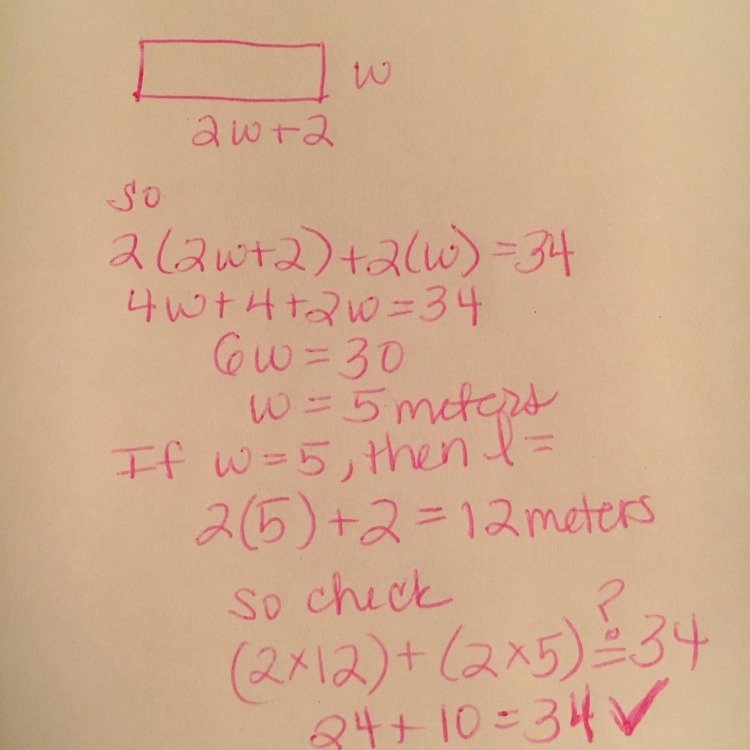 w
2w+2
so
2(2w+2)+2(w)=34
4w+4+2w=34
6w=30
w=5 meters
If w=5, then l=
2(5)+2=12 meters
so check
(2×12)+(2×5)≟34
24+10=34✓